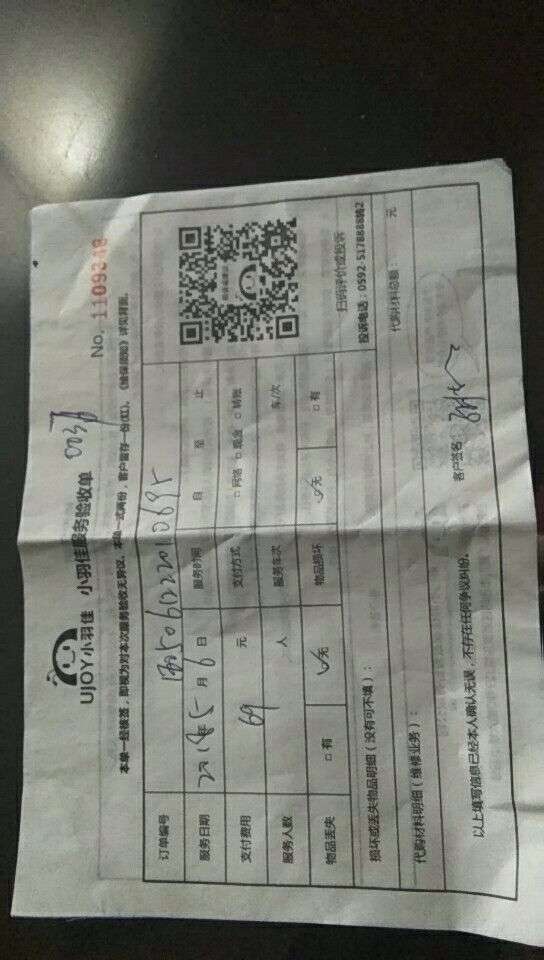 UJOY小羽佳 小羽佳服务验收单
No. 1109248
本单一经核签，即视为对本次服务验收无异议。本单一式两份，客户留存一份(红)。《维保须知》详见背面。
订单编号
服务日期 2018年5月6日 服务时间 自 至 止
支付费用 69 元 支付方式 □网络 □现金 □转账
服务人数 人 服务车次 车/次
物品丢失 □有 ☑无 物品损坏 ☑无 □有
扫码评价或投诉
投诉电话：0592-5178888转2
损坏或丢失物品明细（没有可不填）：
代购材料明细（维修业务）： 代购材料总额： 元
以上填写信息已经本人确认无误，不存在任何争议纠纷。 客户签名：